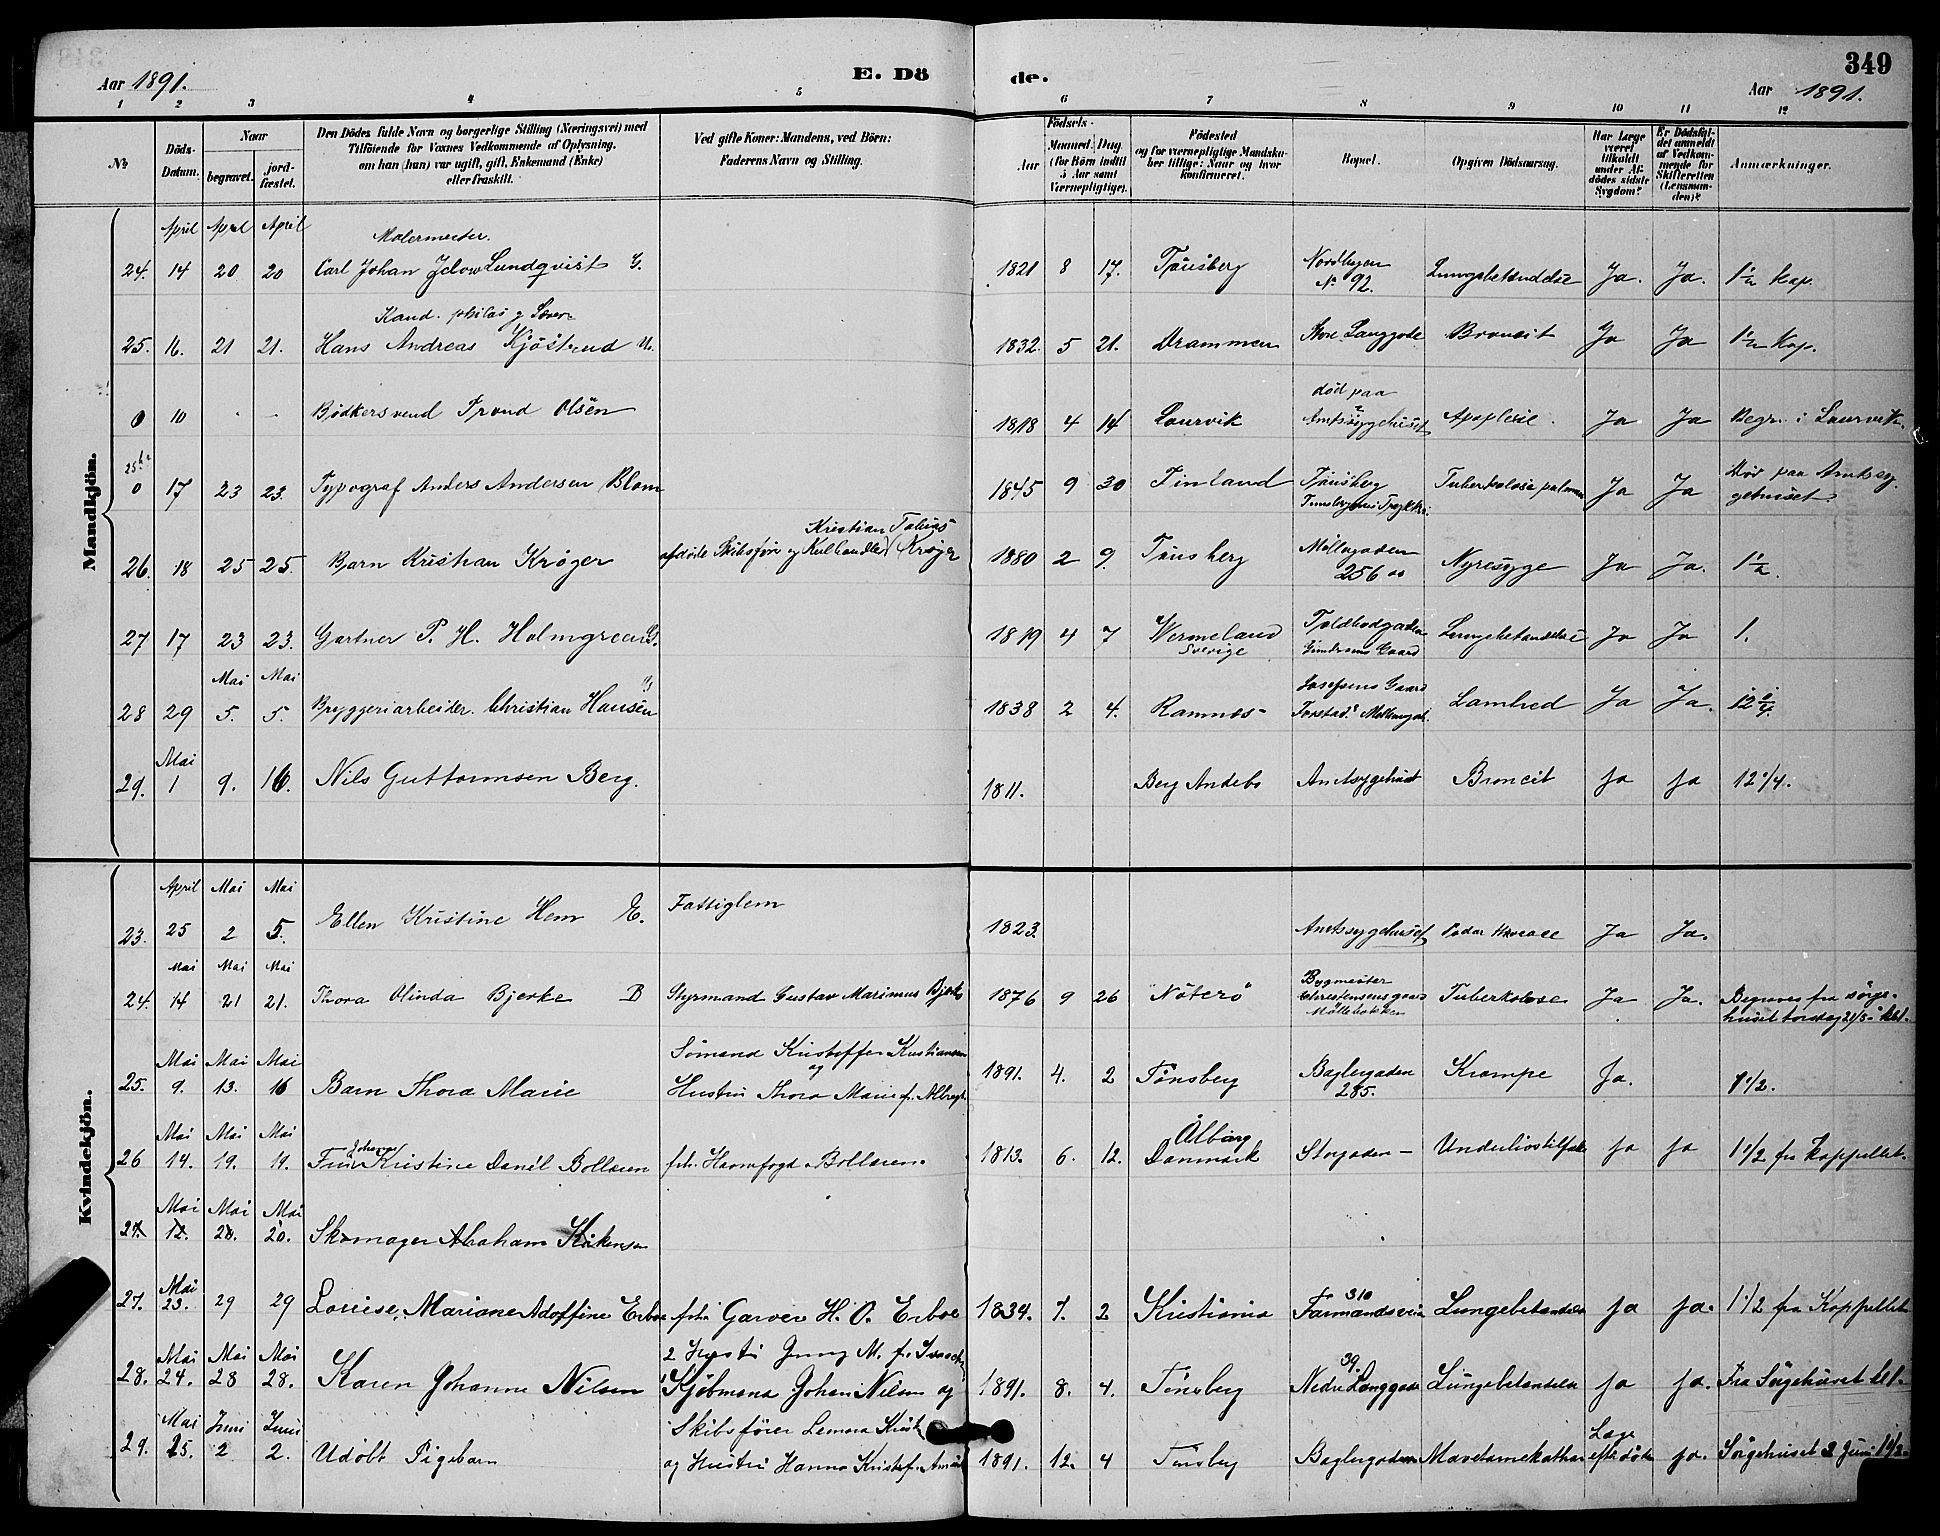 Aar 1891. E. Dö de. Aar 1891. 349
1 2 3 4 5 6 7 8 9 10 11 12
No
Döds-Datum.
Naar
begravet. jord-fæstet.
Den Dödes fulde Navn og borgerlige Stilling (Næringsvei) med
Tilföiende for Voxnes Vedkommende af Oplysning,
om han (hun) var ugift, gift, Enkemand (Enke)
eller fraskilt.
Ved gifte Koner: Mandens, ved Börn:
Faderens Navn og Stilling.
Födsels-
Aar Maaned. Dag
(for Börn indtil
5 Aar samt
Værnepligtige).
Födested
og for værnepligtige Mandska-
ber tillige: Naar og hvor
konfirmeret.
Bopæl.
Opgiven Dödsaarsag.
Har Læge
været
tilkaldt
under Af-
dödes sidste
Sygdom?
Er Dödsfal-
det anmeldt
af Vedkom-
mende for
Skifteretten
(Lensman-
den)?
Anmærkninger.
Mandkjön.
April April April
Malermester.
24. 14 20 20 Carl Johan Lundqvist G. 1821 8 17. Tønsberg Nordbyen No 92. Lungebetændelse Ja. Ja. 1½ Kap.
Kand. philos og Lærer
25. 16. 21 21. Hans Andreas Kjöstrud U. 1832. 5 21. Drammen Store Langgade Broncit Ja Ja 1½ Kap.
0 10 - - Bödkersvend Trond Olsen 1818 4 14 Laurvik död paa Amtssygehuset Apoplexie. Ja Ja Begr. i Laurvik.
0 17 23 23. Typograf Anders Andersen Blom 1845 9 30 Finland Tønsberg Ja Ja Död paa Amtssy
gehuset
Kristian Tobias
26. 18 25 25. Barn Kristian Krøger afdöde Skibsfører og Kulhandler Krøger 1880 2 9. Tønsberg Møllegaden 256 Nyresyge Ja Ja. 1½.
27 17 23 23. Gartner P. H. Holmgreen G. 1819 4 7 Wermeland Sverige Toldbodgaden Gaard Lungebetændelse Ja Ja 1.
Mai Mai
28 29 5. 5. Bryggeriarbeider. Christian Hansen G 1838 2 4. Ramnes Josefsens Gaard Lamhed Ja Ja.
Mai
29. 1 9. 16. Nils Guttormsen Berg. 1811. Berg Andebo Amtsygehuset Broncit ja ja 12 1/4.
Kvindekjön.
April Mai Mai
23. 25 2 5. Ellen Kristine Hem E. Fattiglem 1823. Amtssygehuset Ja Ja.
Mai Mai Mai
24. 14 21 21. Thora Olinda Bjerke B Styrmand Gustav Marinius Bjerke 1876 9 26 Nöterö Bygmester Christensens gaard Tuberkolose Ja Ja. Begraves fra sørge-
huset torsdag 21/5
Mai Mai Mai
25. 9. 13. 16 Barn Thora Marie Sömand Kristoffer Kristiansen og
Hustru Thora Marie f. 1891. 4. 2 Tönsberg Baglergaden 285. Krampe Ja. 1/2.
Mai Mai Mai
26 14. 19. 19. Fru Johanne Kristine Danél Bollæren fhv. Havnefogd Bollæren. 1813. 6. 12. Ålborg Danmark Storgaden – Underlivstilfælde ja ja 1 1/2 fra Kappellet.
Mai Mai Mai
27. 12. 20. 20. Skomager Abraham
Mai
27. 23. 29 29 Louise Mariane Adolfine Erboe fhv. Garver H. O. Erboe 1834. 7. 2 Kristiania 310 Farmandsveien Lungebetændelse ja ja. 1 1/2 fra Kappellet
Mai Mai Mai
28. 24. 28 28. Karen Johanne Nilsen Kjöbmand Johan Nilsen og 1891. 8. 4. Tönsberg 39. Nedre Langgade Lungebetændelse ja ja. Fra Sörgehuset kl 1.
Mai Juni Juni
29. 25. 2 2. Udöbt Pigebarn Skibsfører
og Hustru Hanna 1891. 12. 4 Tönsberg Baglergaden Mavetarmekathar Læge efter döden ja. Sörgehuset 2 Juni 1 1/2